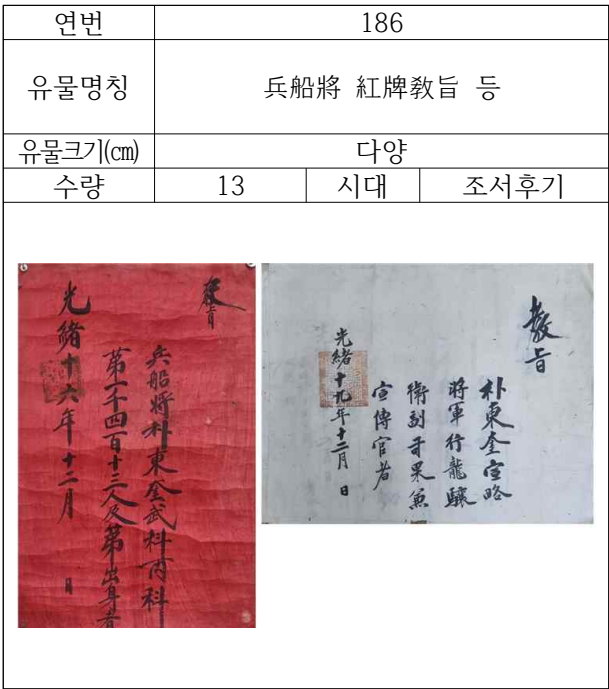 연번 186
유물명칭 兵船將 紅牌敎旨 등
유물크기(㎝) 다양
수량 13 시대 조서후기
敎旨
兵船將朴東奎武科丙科
第一千四百十三人及第出身者
光緖十六年十二月 日
敎旨
朴東奎宣略
將軍行龍驤
衛副司果兼
宣傳官者
光緖十九年十二月 日